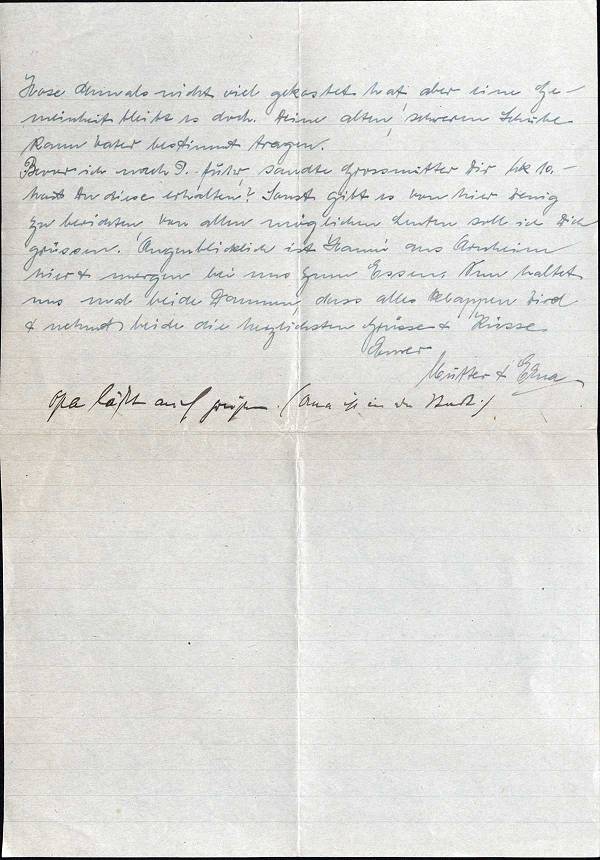 Hose damals nicht viel gekostet hat, aber eine Ge-
meinheit bleibt es doch. Deine alten, schweren Schuhe
kann Vater bestimmt tragen.
Bevor ich nach D. fuhr, sandte Grossmutter Dir Mk 10.-
hast Du diese erhalten? Sonst gibt es von hier wenig
zu berichten von allen möglichen Leuten soll ich Dich
grüssen. Augenblicklich ist aus Arnheim
hier & morgen bei uns zum Essen. Nun haltet
uns mal beide Daumen, dass alles klappen wird
& nehmt beide die herzlichsten Grüsse & Küsse
Eurer
Mutter &
Opa läßt auch grüßen. (Oma ist in der Stadt.)